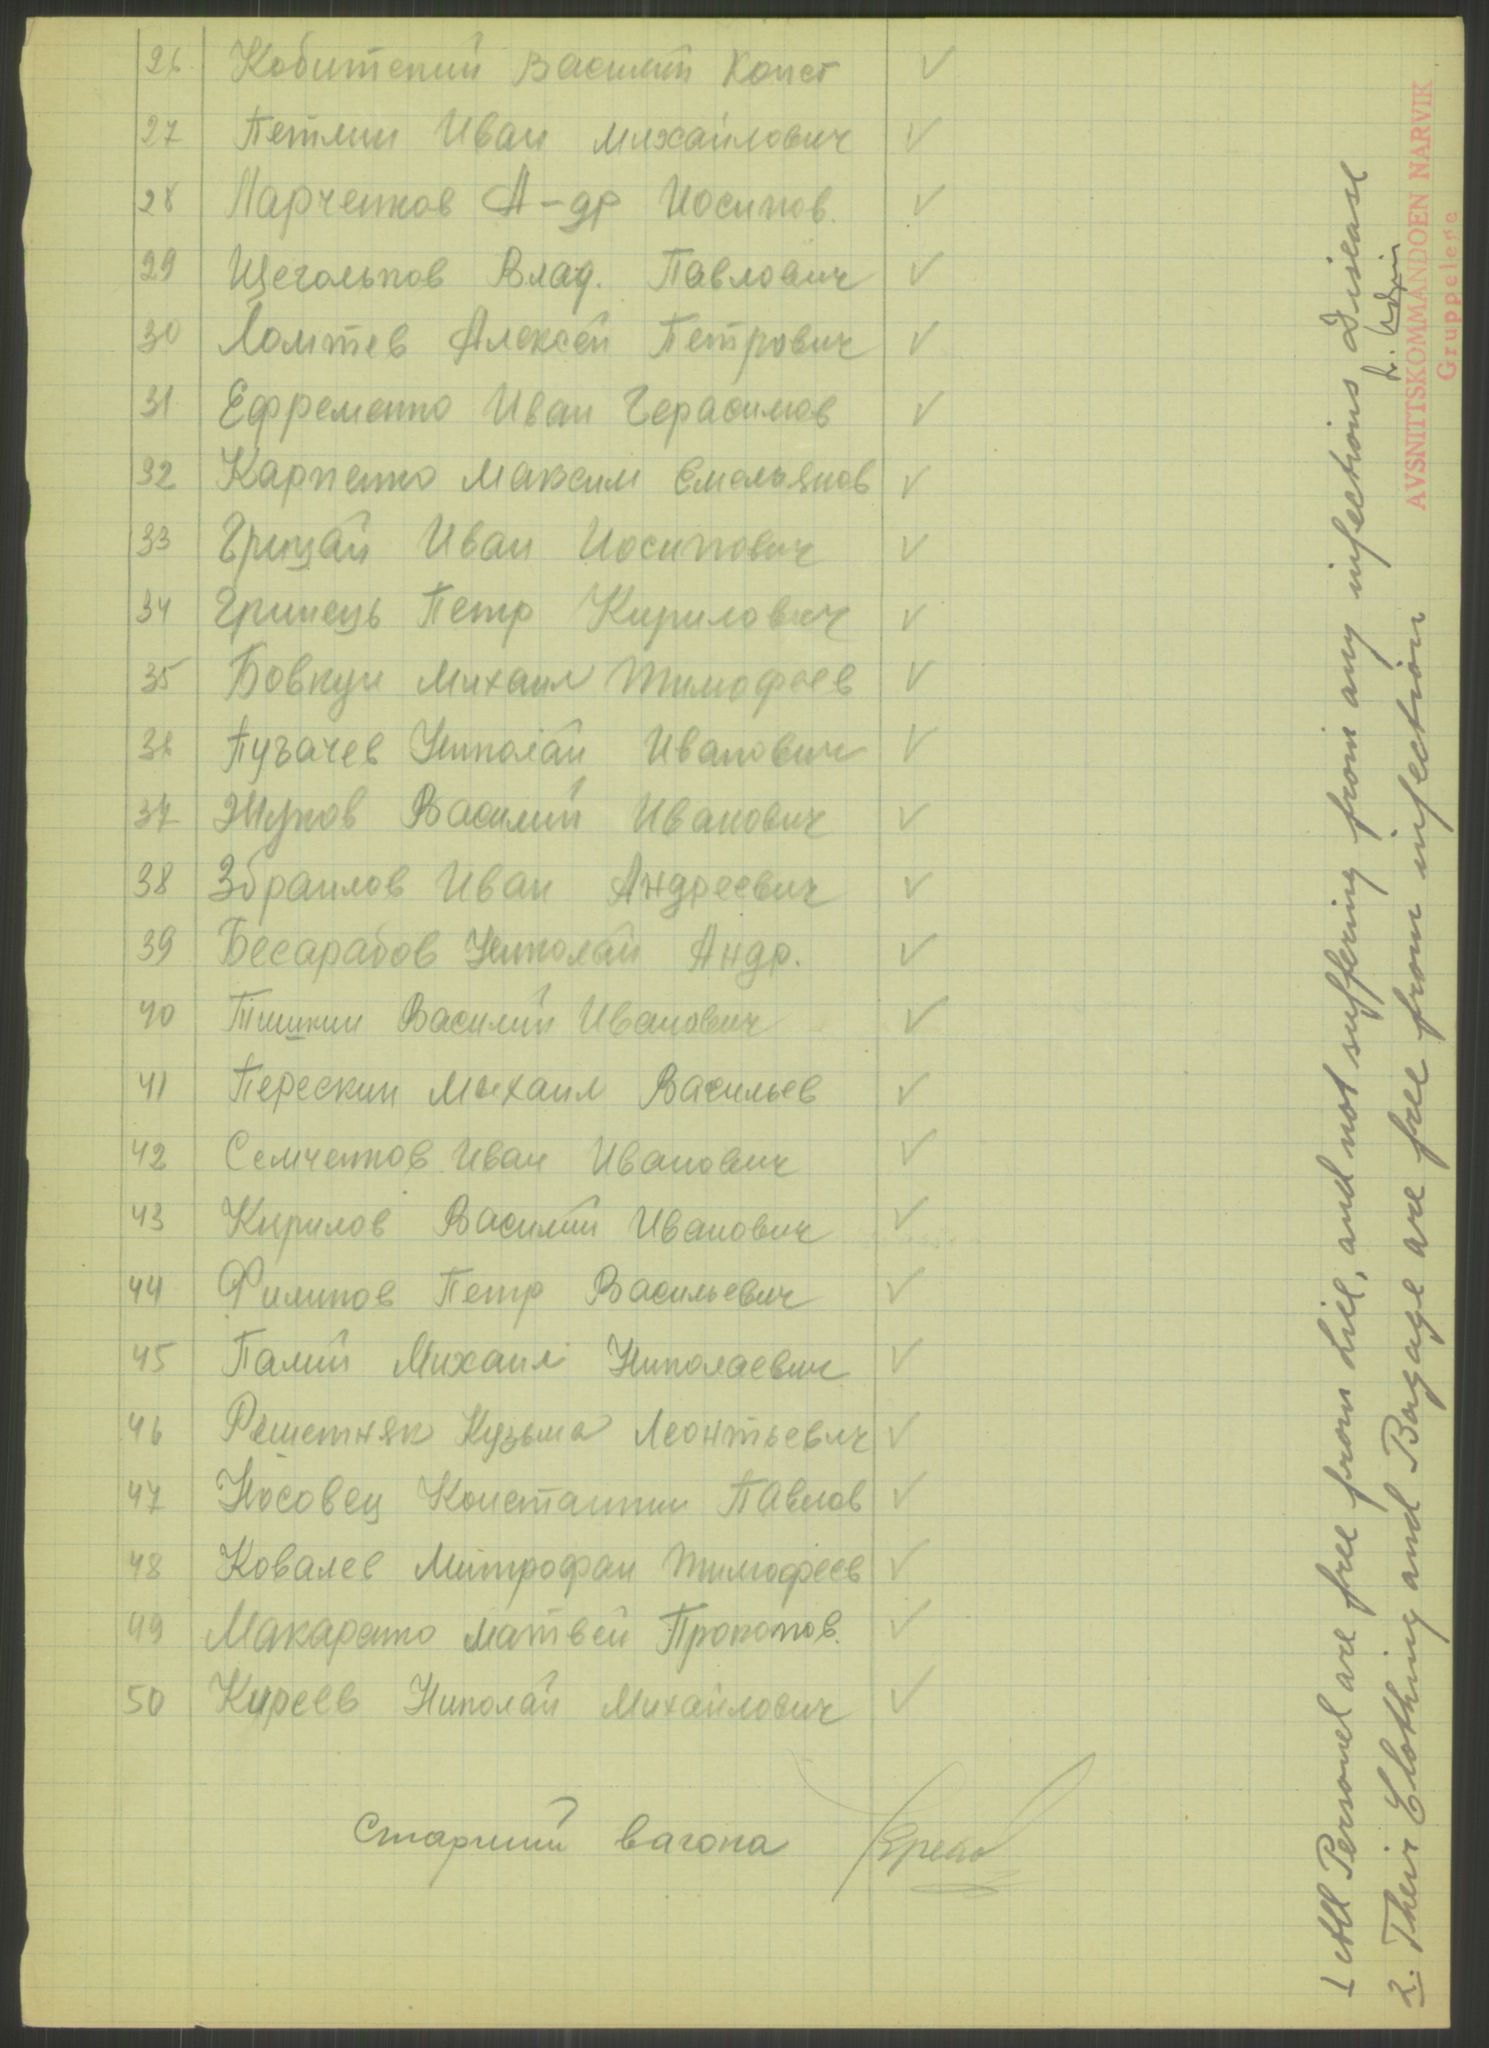 26 Кобитский Василий Конст ✓
27 Петлин Иван Михайлович ✓
28 Парченков А-др Иосипов. ✓
29 Щегольков Влад. Павлович ✓
30 Ломтев Алексей Петрович ✓
31 Ефременко Иван Герасимов ✓
32 Карпенко Максим Емельянов ✓
33 Грицай Иван Иосипович ✓
34 Гринець Петр Кирилович ✓
35 Бовкун Михаил Тимофеев ✓
36 Пугачев Николай Иванович ✓
37 Жуков Василий Иванович ✓
38 Збраилов Иван Андреевич ✓
39 Бесарабов Николай Андр. ✓
40 Тишкин Василий Иванович ✓
41 Перескин Михаил Васильев ✓
42 Семченков Иван Иванович ✓
43 Кирилов Василий Иванович ✓
44 Филипов Петр Васильевич ✓
45 Палий Михаил Николаевич ✓
46 Решетняк Кузьма Леонтьевич ✓
47 Носовец Константин Павлов ✓
48 Ковалев Митрофан Тимофеев ✓
49 Макаренко Матвей Прокопов. ✓
50 Куреев Николай Михайлович ✓
Старший вагона
1 All Personel are free from Lice, and not suffering from any infections Disease
2. Their Clothing and Bagage are free from infection
AVSNITTSKOMMANDOEN NARVIK
Gruppelege